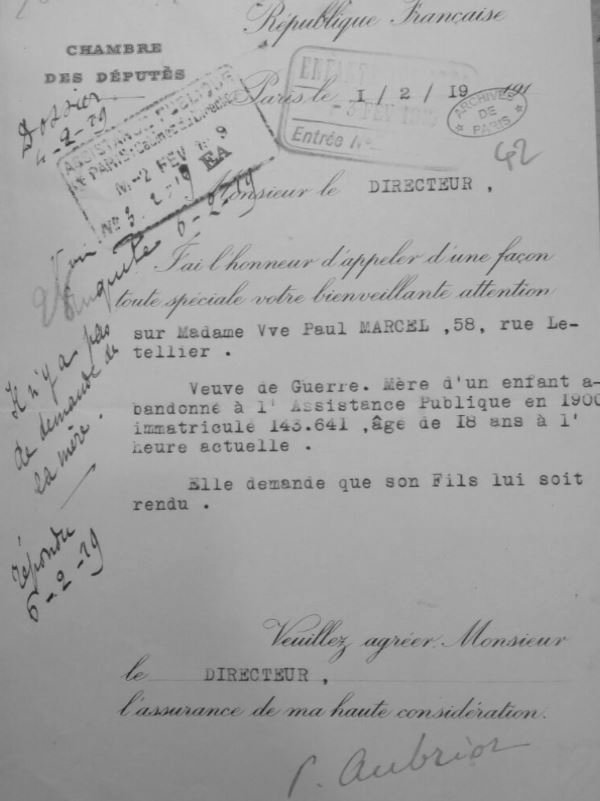 République Française
CHAMBRE
DES DÉPUTÉS
Paris, le 1 / 2 / 19 191
Dossier
4-2-19
ASSISTANCE PUBLIQUE
DE PARIS
M-2 FEV 1919
No 3. 2.719 EA
ENFANTS
-3 FEV 19
Entrée No
ARCHIVES
DE
PARIS
42
Monsieur le DIRECTEUR ,
J'ai l'honneur d'appeler d'une façon
toute spéciale votre bienveillante attention
sur Madame Vve Paul MARCEL ,58, rue Le-
tellier .
Veuve de Guerre. Mère d'un enfant a-
bandonné à l' Assistance Publique en 1900
immatriculé 143.641 ,âgé de 18 ans à l'
heure actuelle .
Elle demande que son Fils lui soit
rendu .
enquête 6-2-19
Il n'y a pas
de demande de
la mère .
répondu
6-2-19
Veuillez agréer, Monsieur
le DIRECTEUR ,
l'assurance de ma haute considération.
P. Aubriot